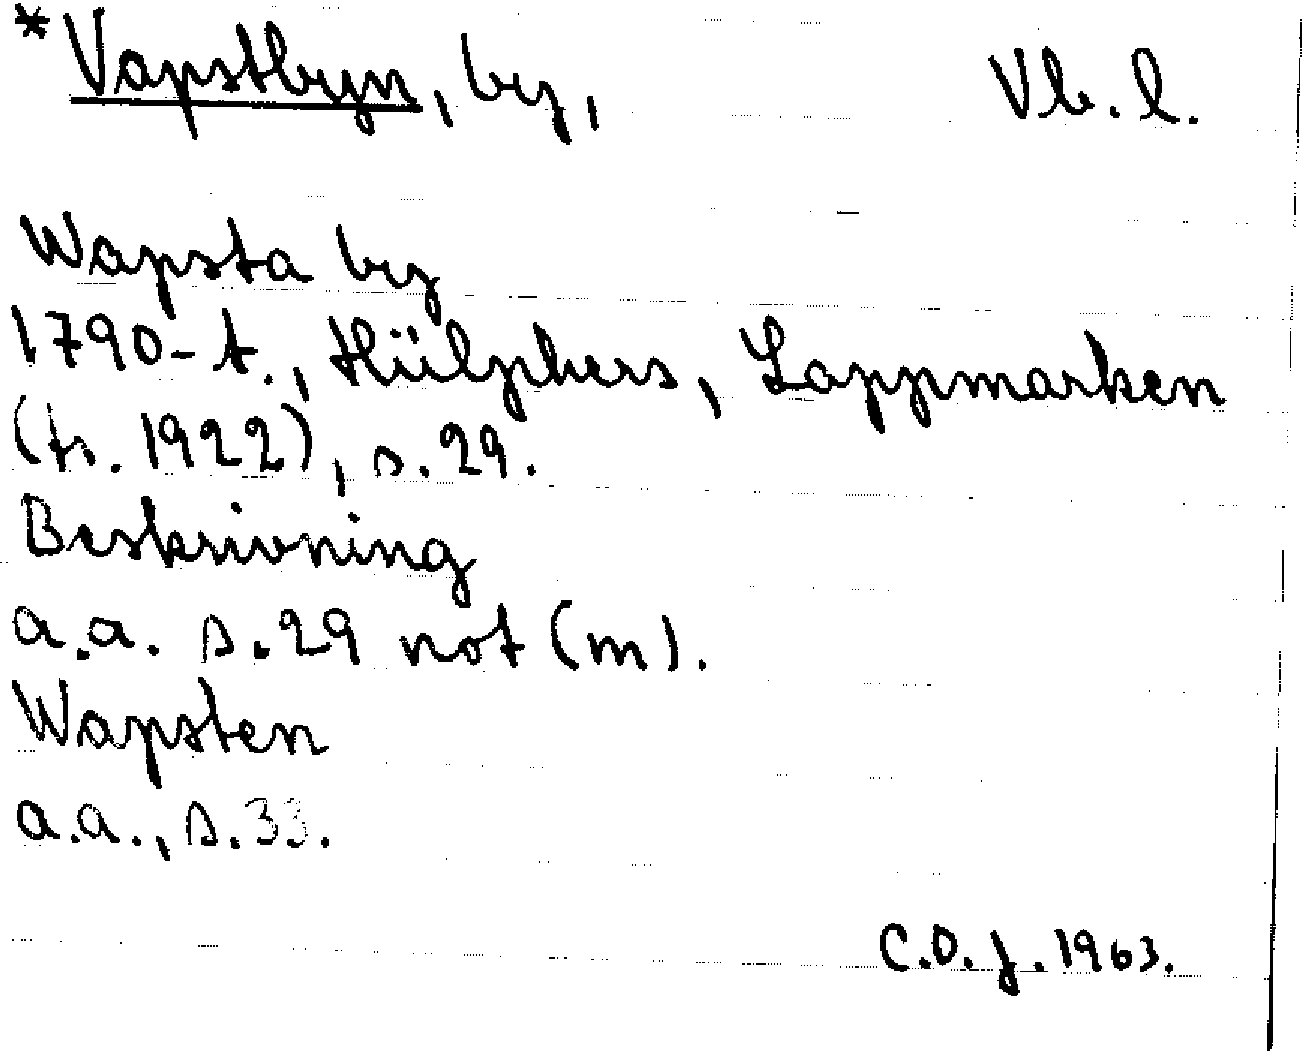 *Vapstbyn, by, Vb. l.
Wapsta by
1790-t., Hülphers, Lappmarken
(tr. 1922), s. 29.
Beskrivning
a.a. s. 29 not (m).
Wapsten
a.a., s. 33.
C.O.J. 1963.